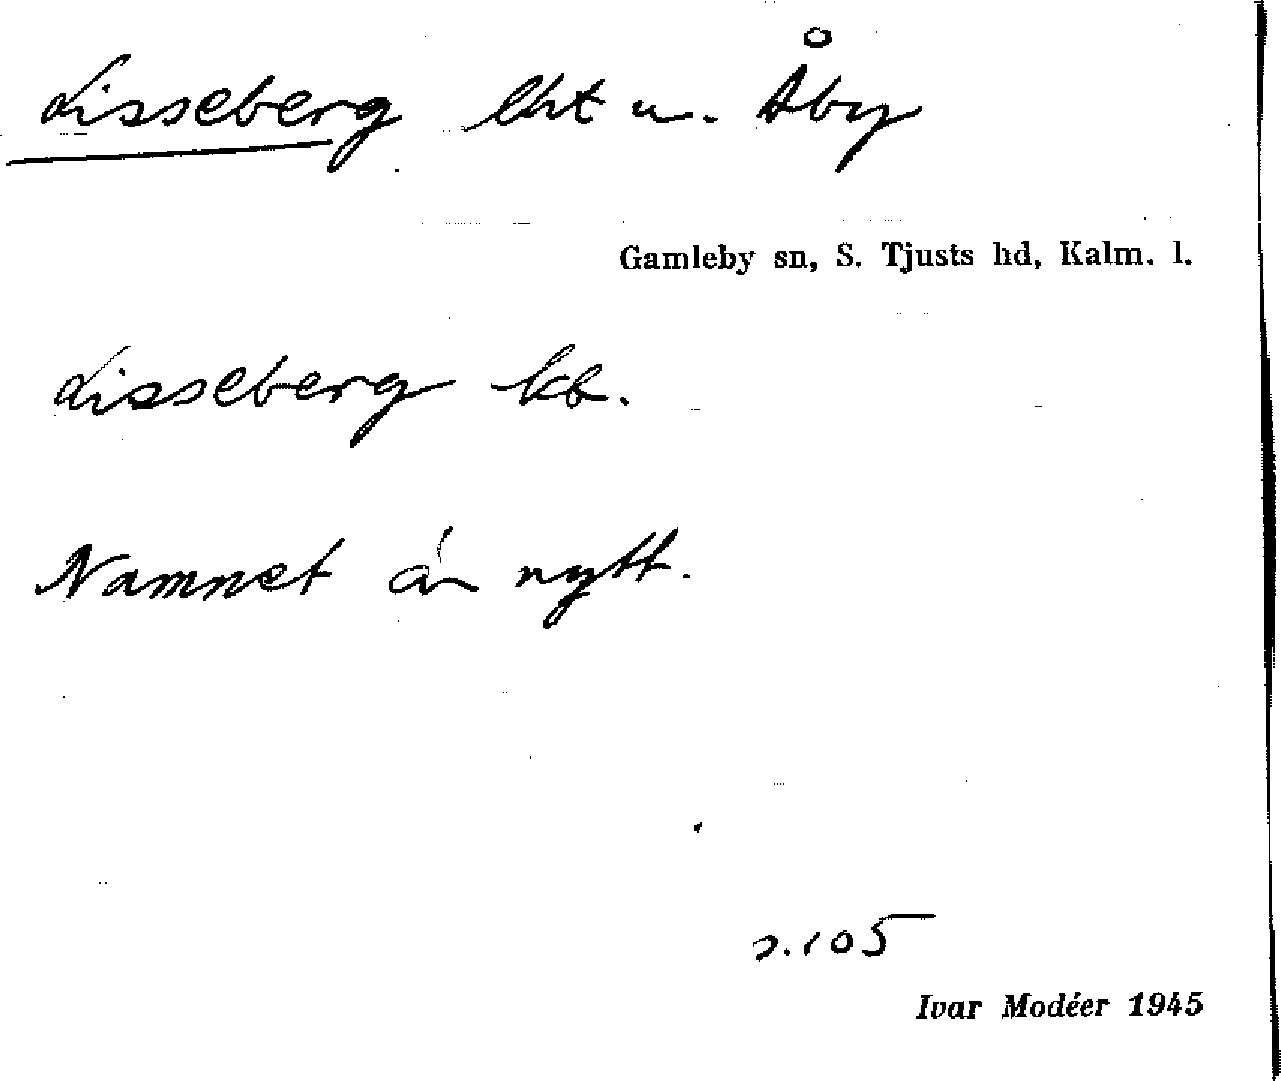 Lisseberg lht u. Åby
Gamleby sn, S. Tjusts hd, Kalm. l.
Lisseberg kb.
Namnet är nytt.
s. 105
Ivar Modéer 1945